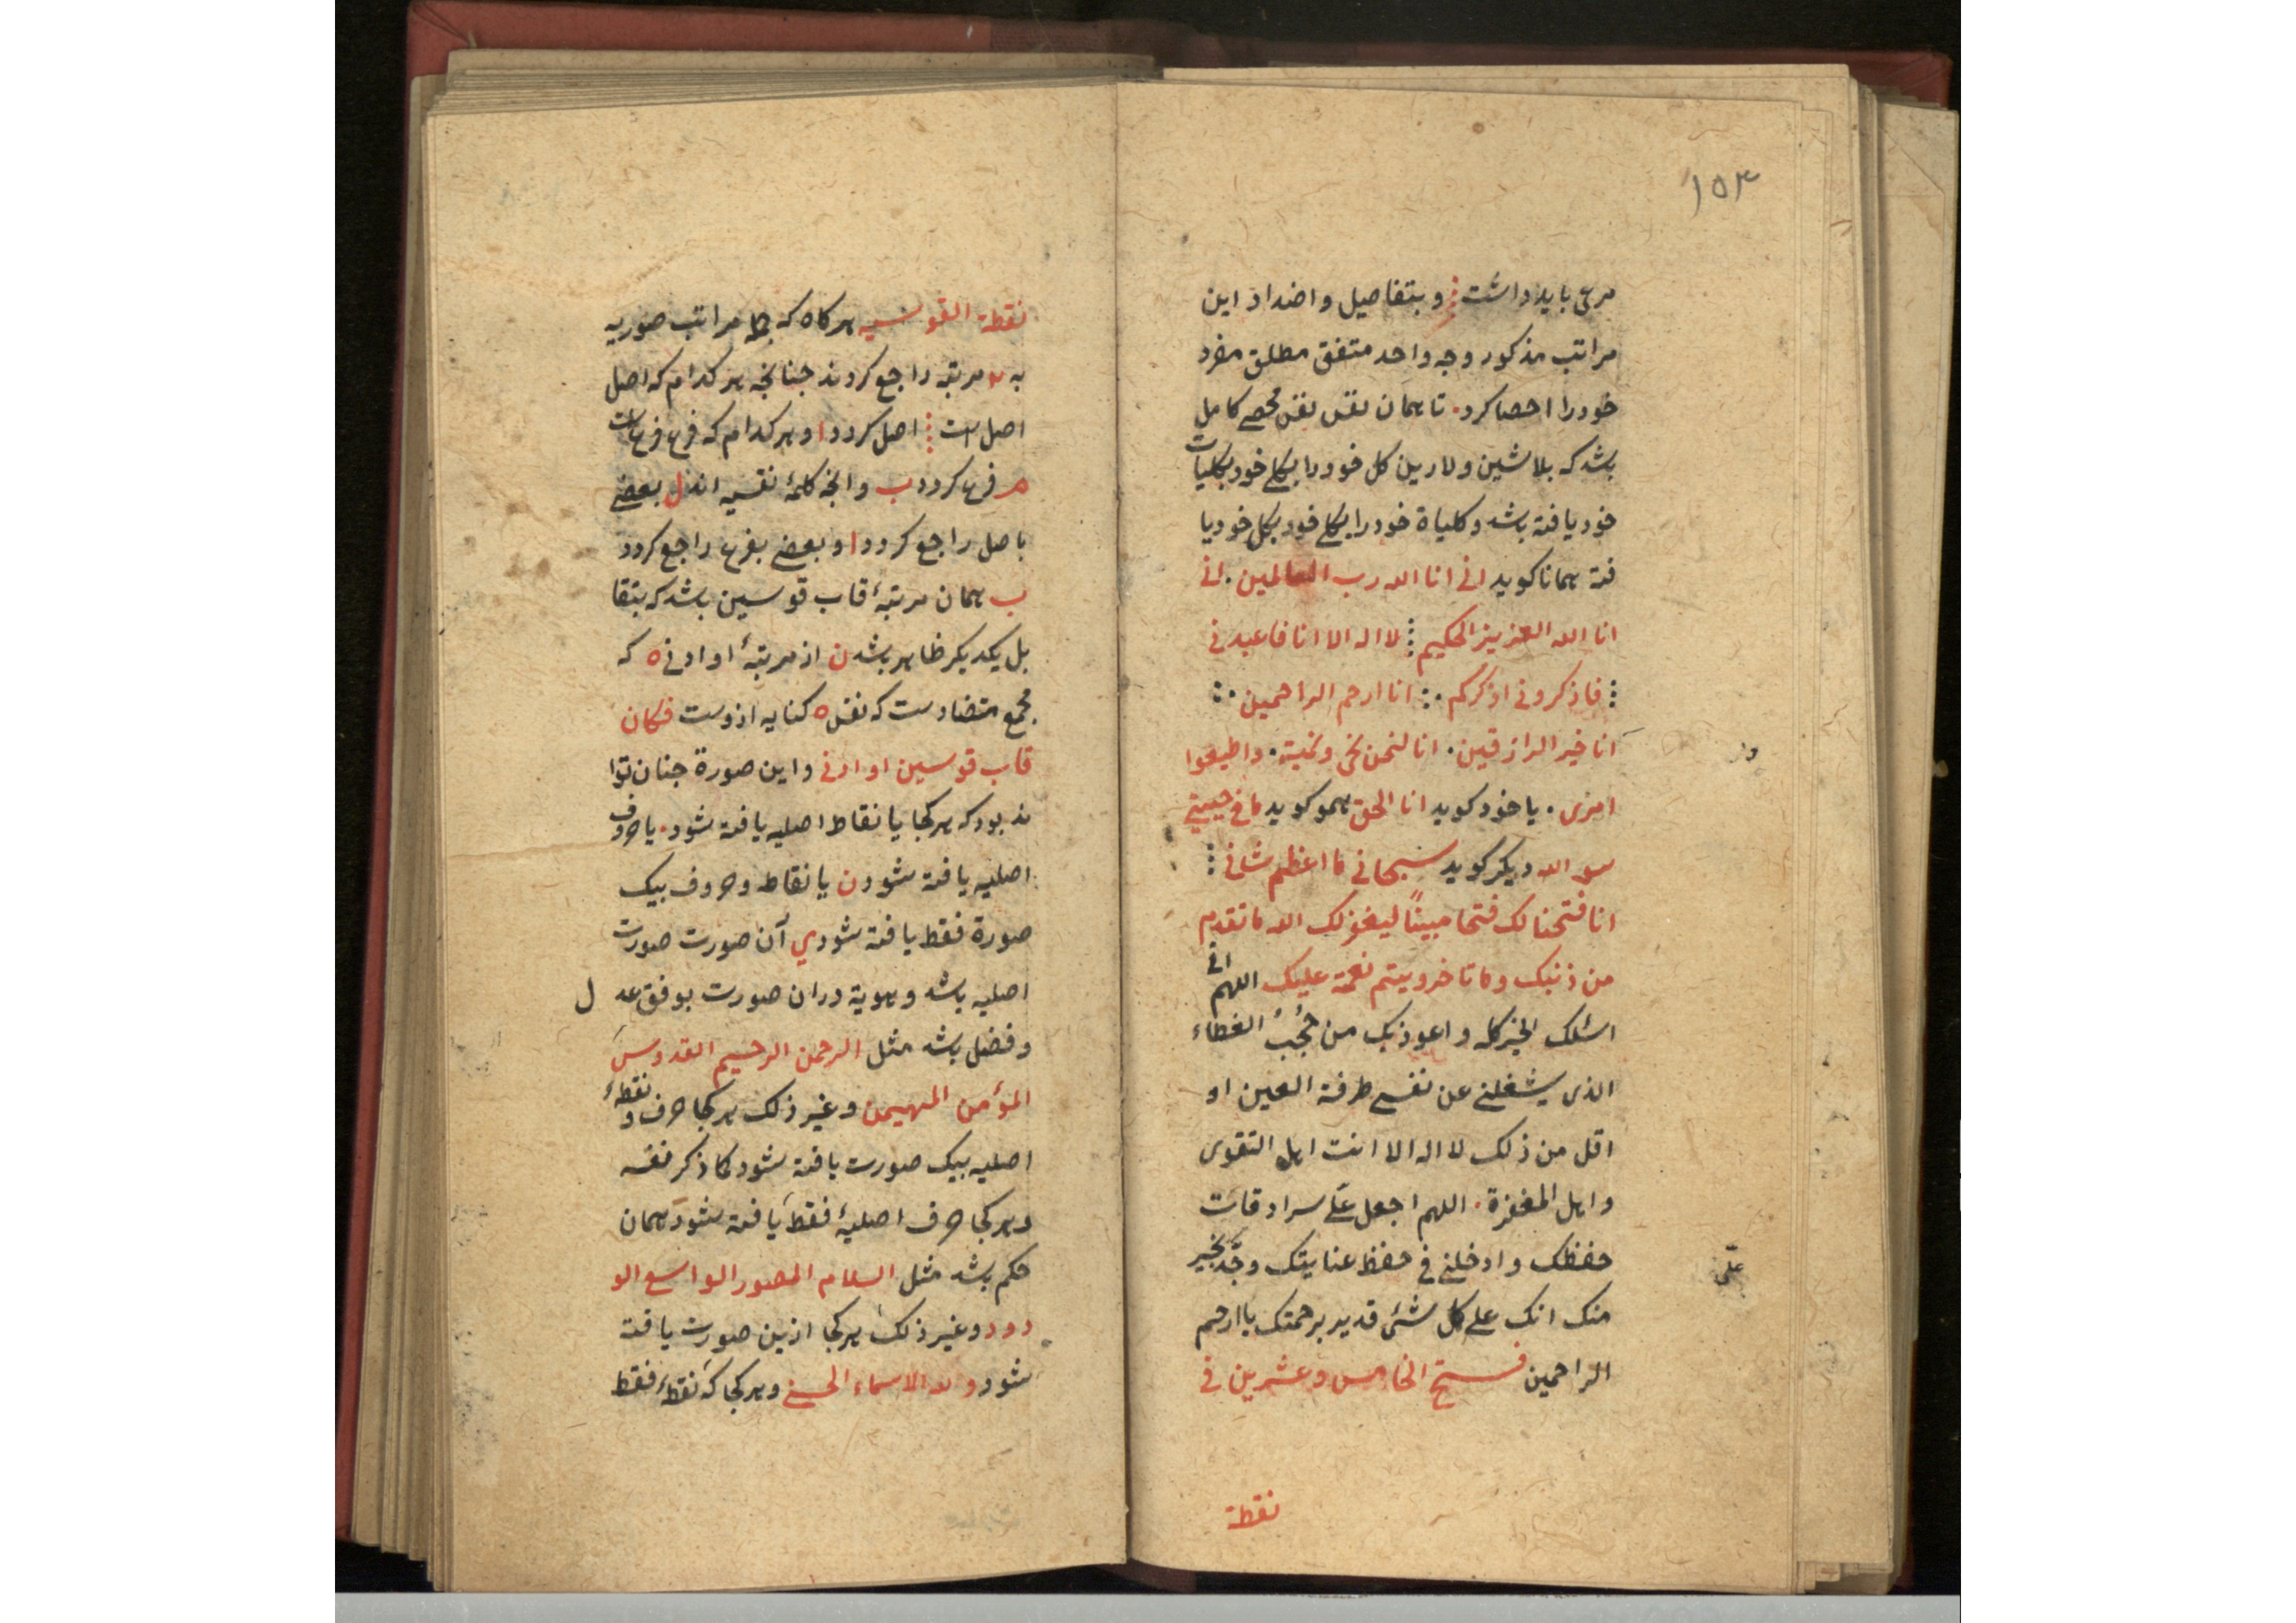 ۱۵۳
مرعی باید داشت و بتفاصیل و اضداد این
مراتب مذکور وجه واحد متفق مطلق مفرد
خود را احصا کرد. تا همان نفس نفس محصی کامل
باشد که بلا شین و لا رین کل خود را بکلی خود بکلیات
خود یافته باشد و کلیاة خود را بکلی خود بکل خود یا
فته همانا کوید انی انا الله رب العالمین. انی
انا الله العزیز الحکیم لا اله الا انا فاعبدنی
فاذکرونی اذکرکم انا ارحم الراحمین
انا خیر الرازقین. انا لنحن نحی ونمیت. واطیعوا
امری. یا خود کوید انا الحق همو کوید ما فی جبتی
سوا الله دیکر کوید سبحانی ما اعظم شانی
انا فتحنا لک فتحا مبیناً لیغفر لک الله ما تقدم
من ذنبک وما تاخر ویتم نعمته علیک اللهم انی
اسئلک الخیر کله واعوذ بک من حُجُبُ الغطاء
الذی یشغلنی عن نفسی طرفة العین او
اقل من ذلک لا اله الا انت اهل التقوی
واهل المغفرة. اللهم اجعل علَی سرادقات
علّی
حفظک وادخلنی فی حفظ عنایتک وجُد بخیر
منک انک علی کل شئ قدیر برحمتک یا ارحم
الراحمین فتح الخامس وعشرین فی
نقطة
نقطة القوسیه هر کاه که مراتب صوریه
به مرتبه راجع کردند جنانجه هر کدام که اصل
اصل است اصل کردد ا و هر کدام که فرع فرع است
فرع کردد ب وانجه کلمهٔ نفسیه اند ل بعضی
باصل راجع کردد ا و بعضی بفرع راجع کردد
ب همان مرتبهٔ قاب قوسین باشد که بتقا
بل یکدیکر ظاهر باشد ن از مرتبهٔ او ادنی ه که
مجمع متضادست که نفس ه کنایه ازوست فکان
قاب قوسین او ادنی و این صورة جنان توا
ند بود که هر کجا یا نقاط اصلیه یافته شود. یا حروف
اصلیه یافته شود ن یا نقاط و حروف بیک
صورة فقط یافته شود ي آن صورت صورت
اصلیه باشد و هویة دران صورت بوفق عد ل
و فضل باشد مثل الرحمن الرحیم القدوس
المؤمن المهیمن و غیر ذلک هر کجا حرف و نقطهٔ
اصلیه بیک صورت یافته شود کما ذکر نفسه
و هر کجا حرف اصلیهٔ فقط یافته شود همان
حکم باشد مثل السلام المصور الواسع الو
دود و غیر ذلک هر کجا ازین صورت یافته
شود و لله الاسماء الحسنی و هر کجا که نقطهٔ فقط